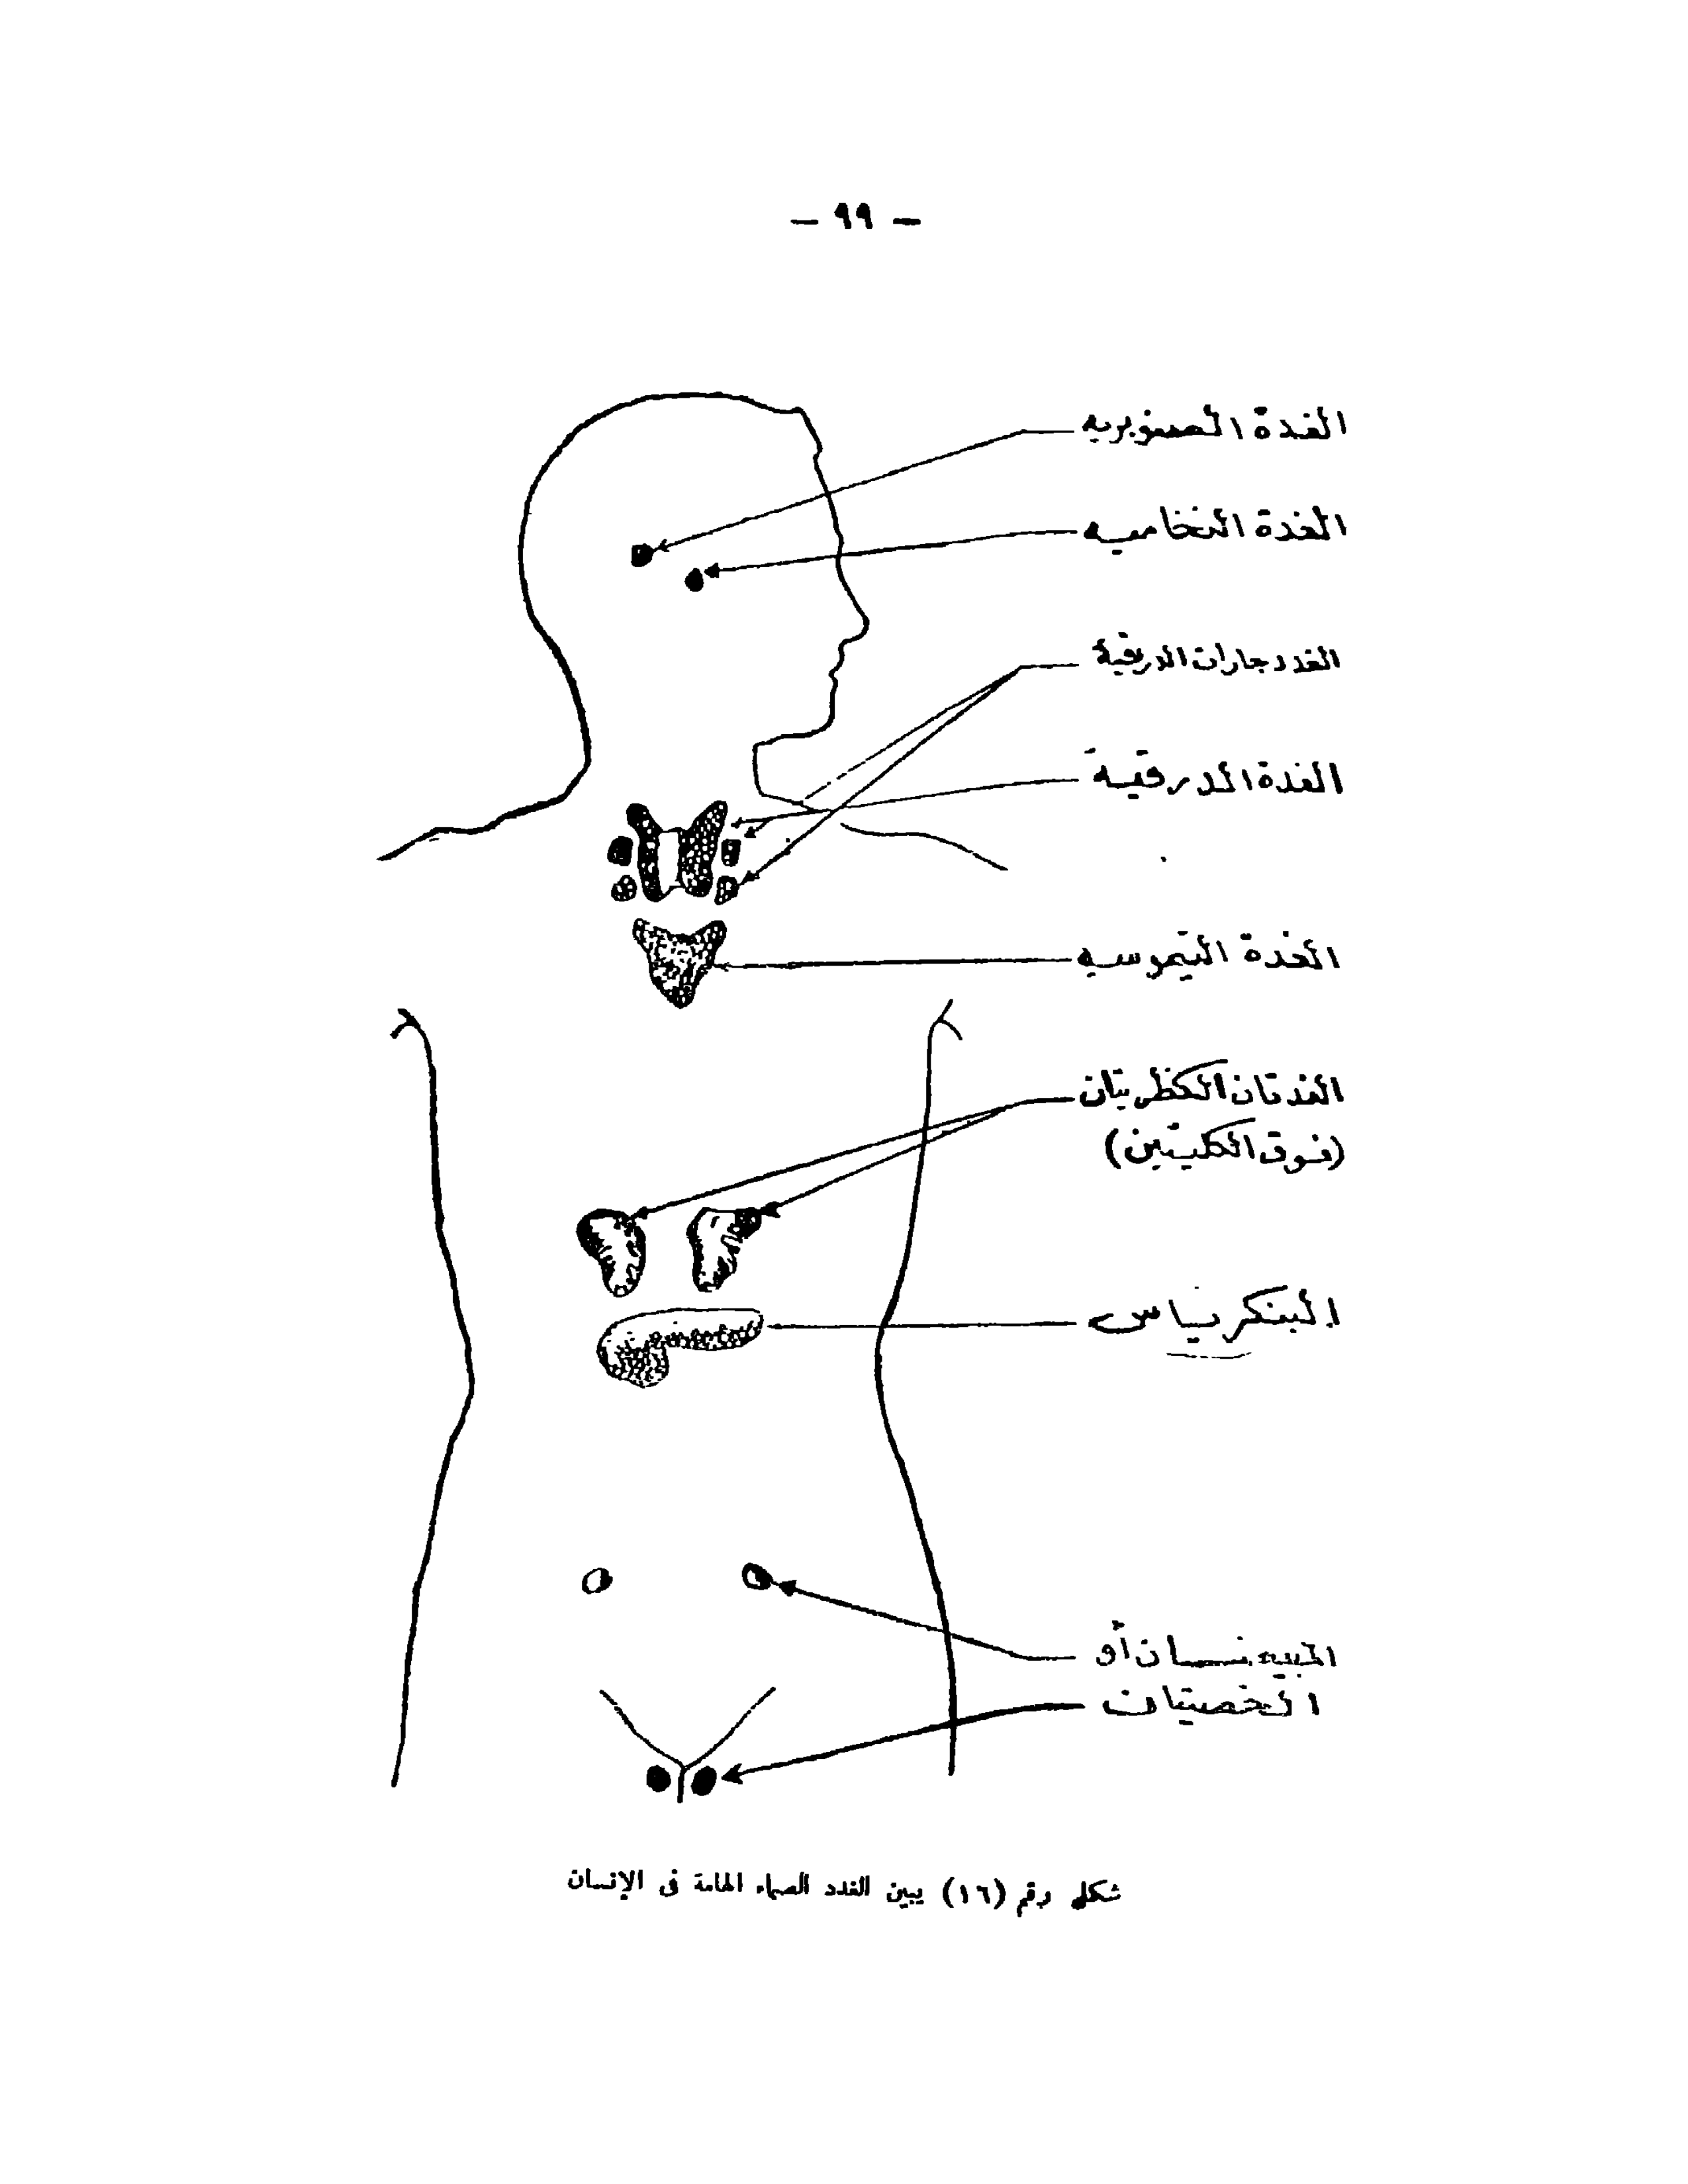 — ٩٩ —
الغدة الصنوبريه
الغدة النخاميه
الغدد جارات الدرقية
الغدة الدرقية
الغدة التيموسيه
الغدتان الكظريتان
(فوق الكليتين)
البنكرياس
المبيضان أو
الخصيتان
شكل رقم (١٦) يبين الغدد الصماء الهامة فى الإنسان